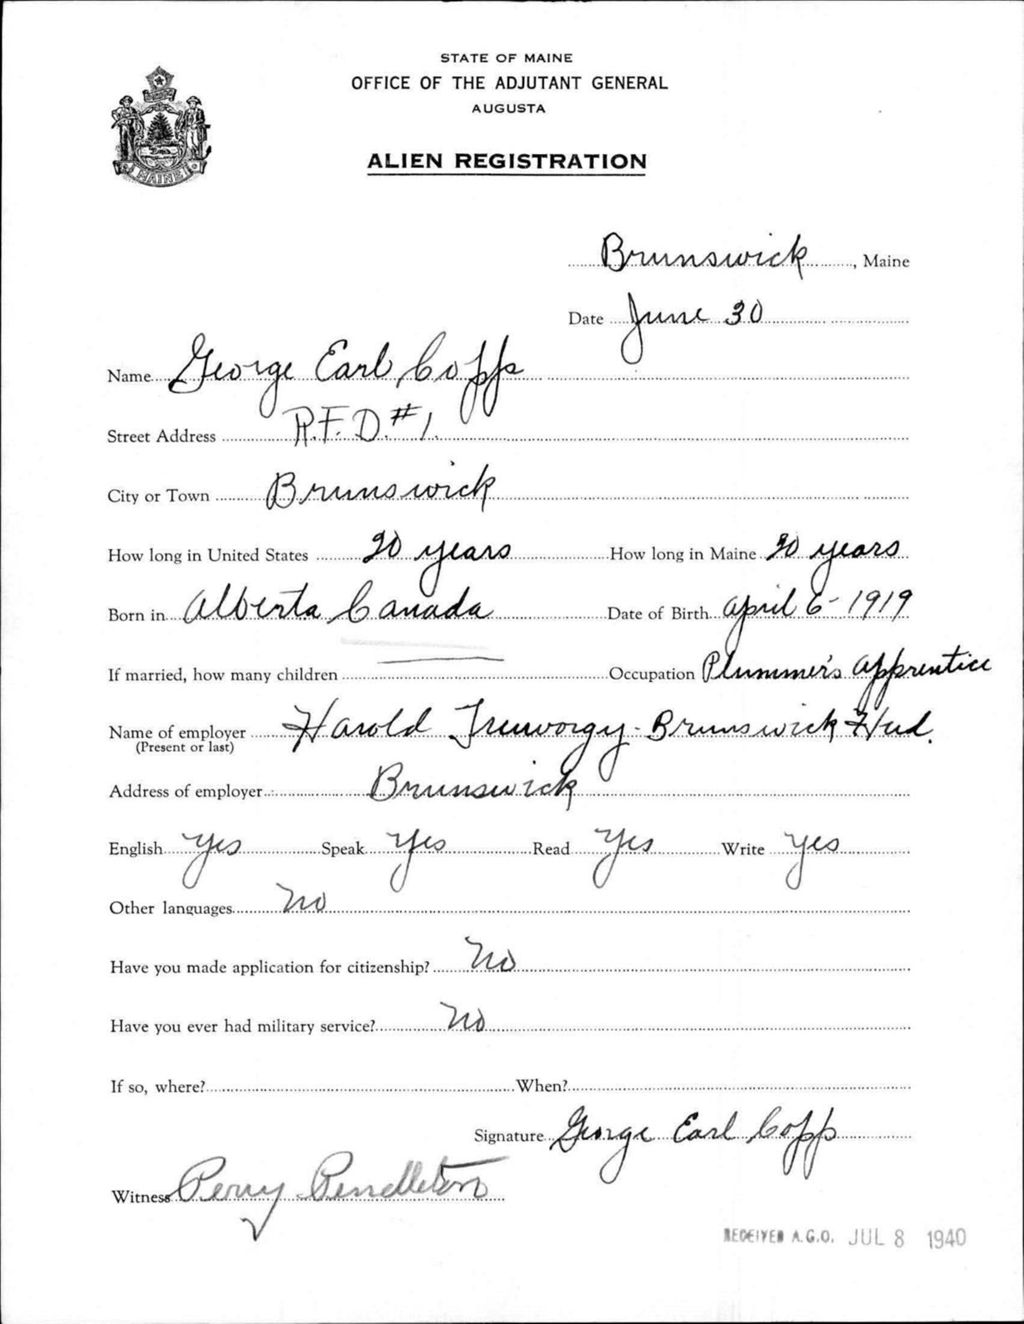 STATE OF MAINE
OFFICE OF THE ADJUTANT GENERAL
AUGUSTA
ALIEN REGISTRATION
MAINE
Brunswick, Maine
Date June 30
Name George Earl Copp
Street Address R.F.D. #1.
City or Town Brunswick
How long in United States 20 years How long in Maine 20 years
Born in Alberta Canada Date of Birth April 6 - 1919
If married, how many children — Occupation Plummer's Apprentice
Name of employer Harold Treworgy - Brunswick Hud.
(Present or last)
Address of employer Brunswick
English Yes Speak Yes Read Yes Write Yes
Other languages No
Have you made application for citizenship? No
Have you ever had military service? No
If so, where? When?
Signature George Earl Copp
Witness Perry Pendleton
RECEIVED A.G.O. JUL 8 1940